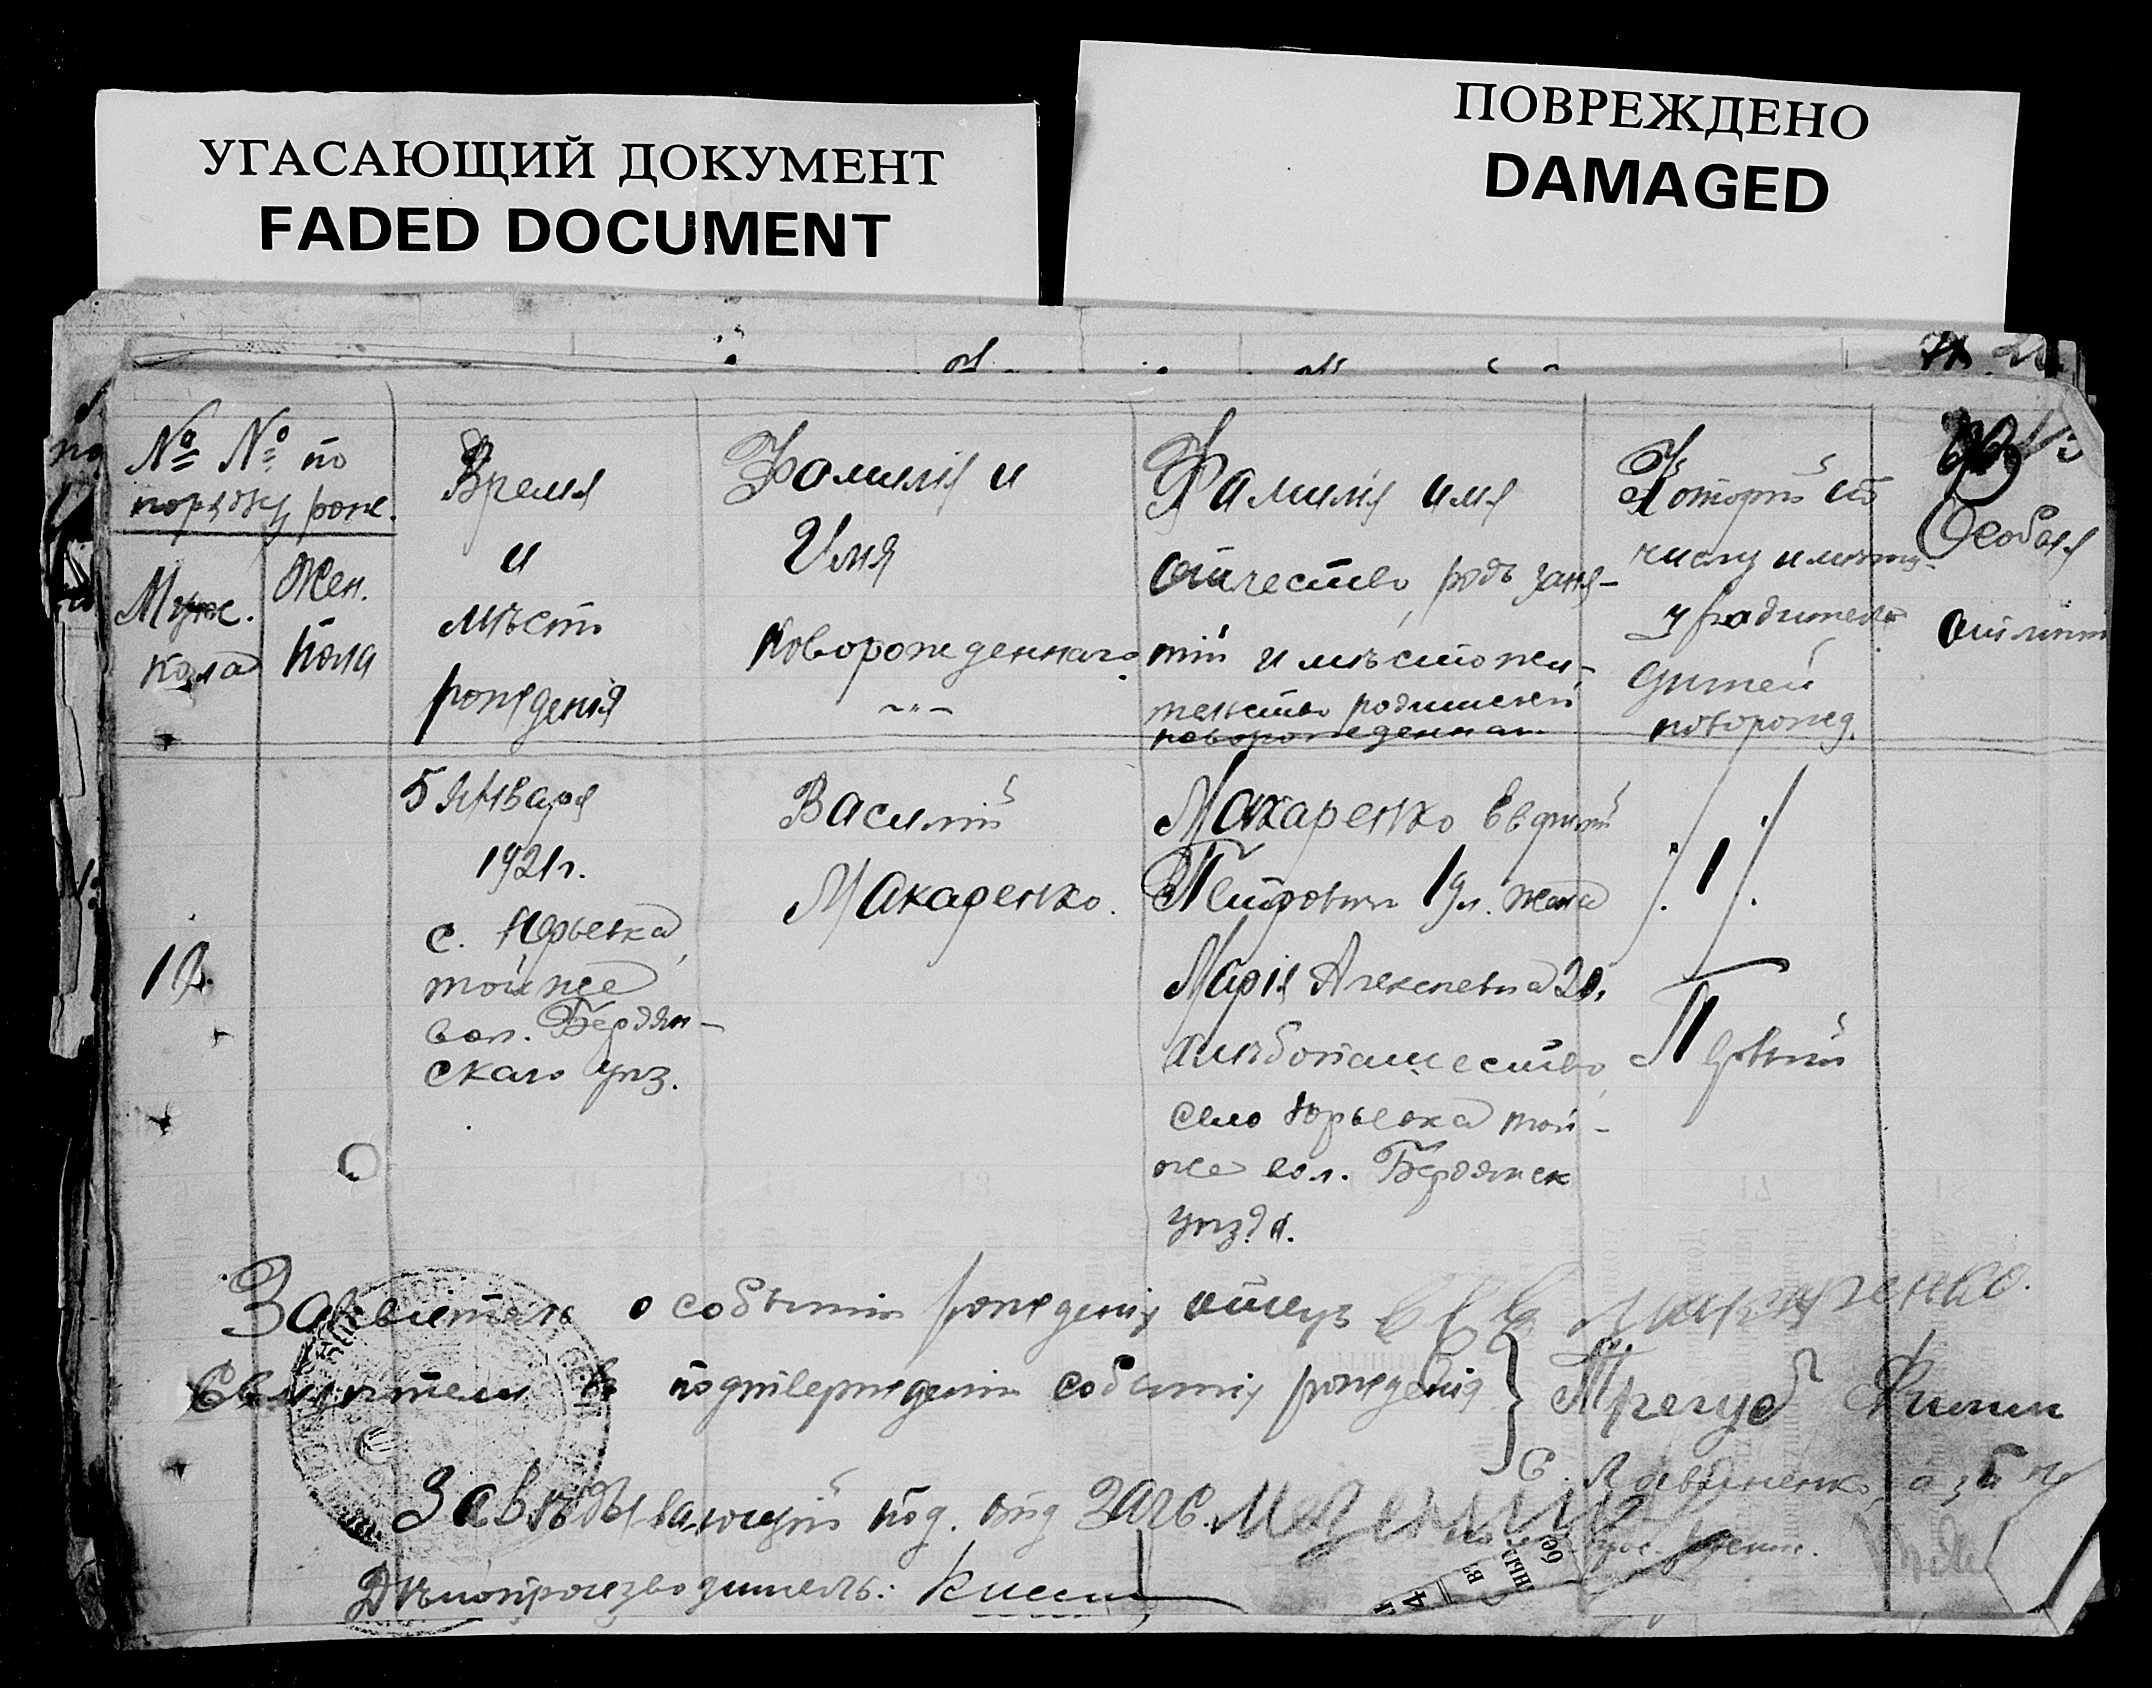 УГАСАЮЩИЙ ДОКУМЕНТ
FADED DOCUMENT
ПОВРЕЖДЕНО
DAMAGED
№ № по
порядку рож.
Муж.
пола
Жен.
пола
Время
и
мѣсто
рожденія
Фамилія и
Имя
Новорожденнаго
Фамилія имя
отчество, родъ заня-
тій и мѣсто жи-
тельство родителей
новорожденнаго
Который по
числу
у родителей
дитей
новорожд.
Особая
12.
5 Января
1921 г.
с. Юрьевка
той же
вол. Бердян-
скаго уѣз.
Василій
Макаренко.
Макаренко
Петровичъ жена
Марія Алексѣевна 20.
хлѣбопашество
село Юрьевка той-
же вол. Бердянск
уѣзда.
1
Первый
Заявитель о событіи рожденія отецъ Макаренко.
Свидѣтели въ подтвержденіи событія рожденія } Трегуб Филип
Завѣдывающій под. отд ЗАГС.
Дѣлопроизводитель: